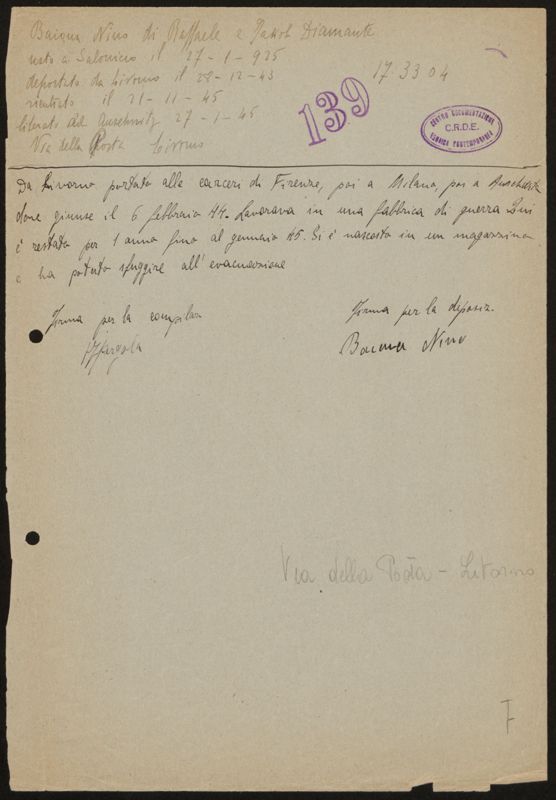 Baiona Nino di Raffaele e Diamante
nato a Salonicco il 27-1-925
deportato da Livorno il 28-12-43
rientrato il 21-11-45
liberato ad Auschwitz 27-1-45
Via della Posta Livorno
173304
139
CENTRO DOCUMENTAZIONE
C.R.D.E.
EBRAICA CONTEMPORANEA
Da Livorno portato alle carceri di Firenze, poi a Milano, poi a Auschwitz
dove giunse il 6 febbraio 44. Lavorava in una fabbrica di guerra. Qui
è restato per 1 anno fino al gennaio 45. Si è nascosto in un magazzino
e ha potuto sfuggire all'evacuazione
Firma per la compilaz.
Firma per la deposiz.
Baiona Nino
Via della Posta - Livorno
7